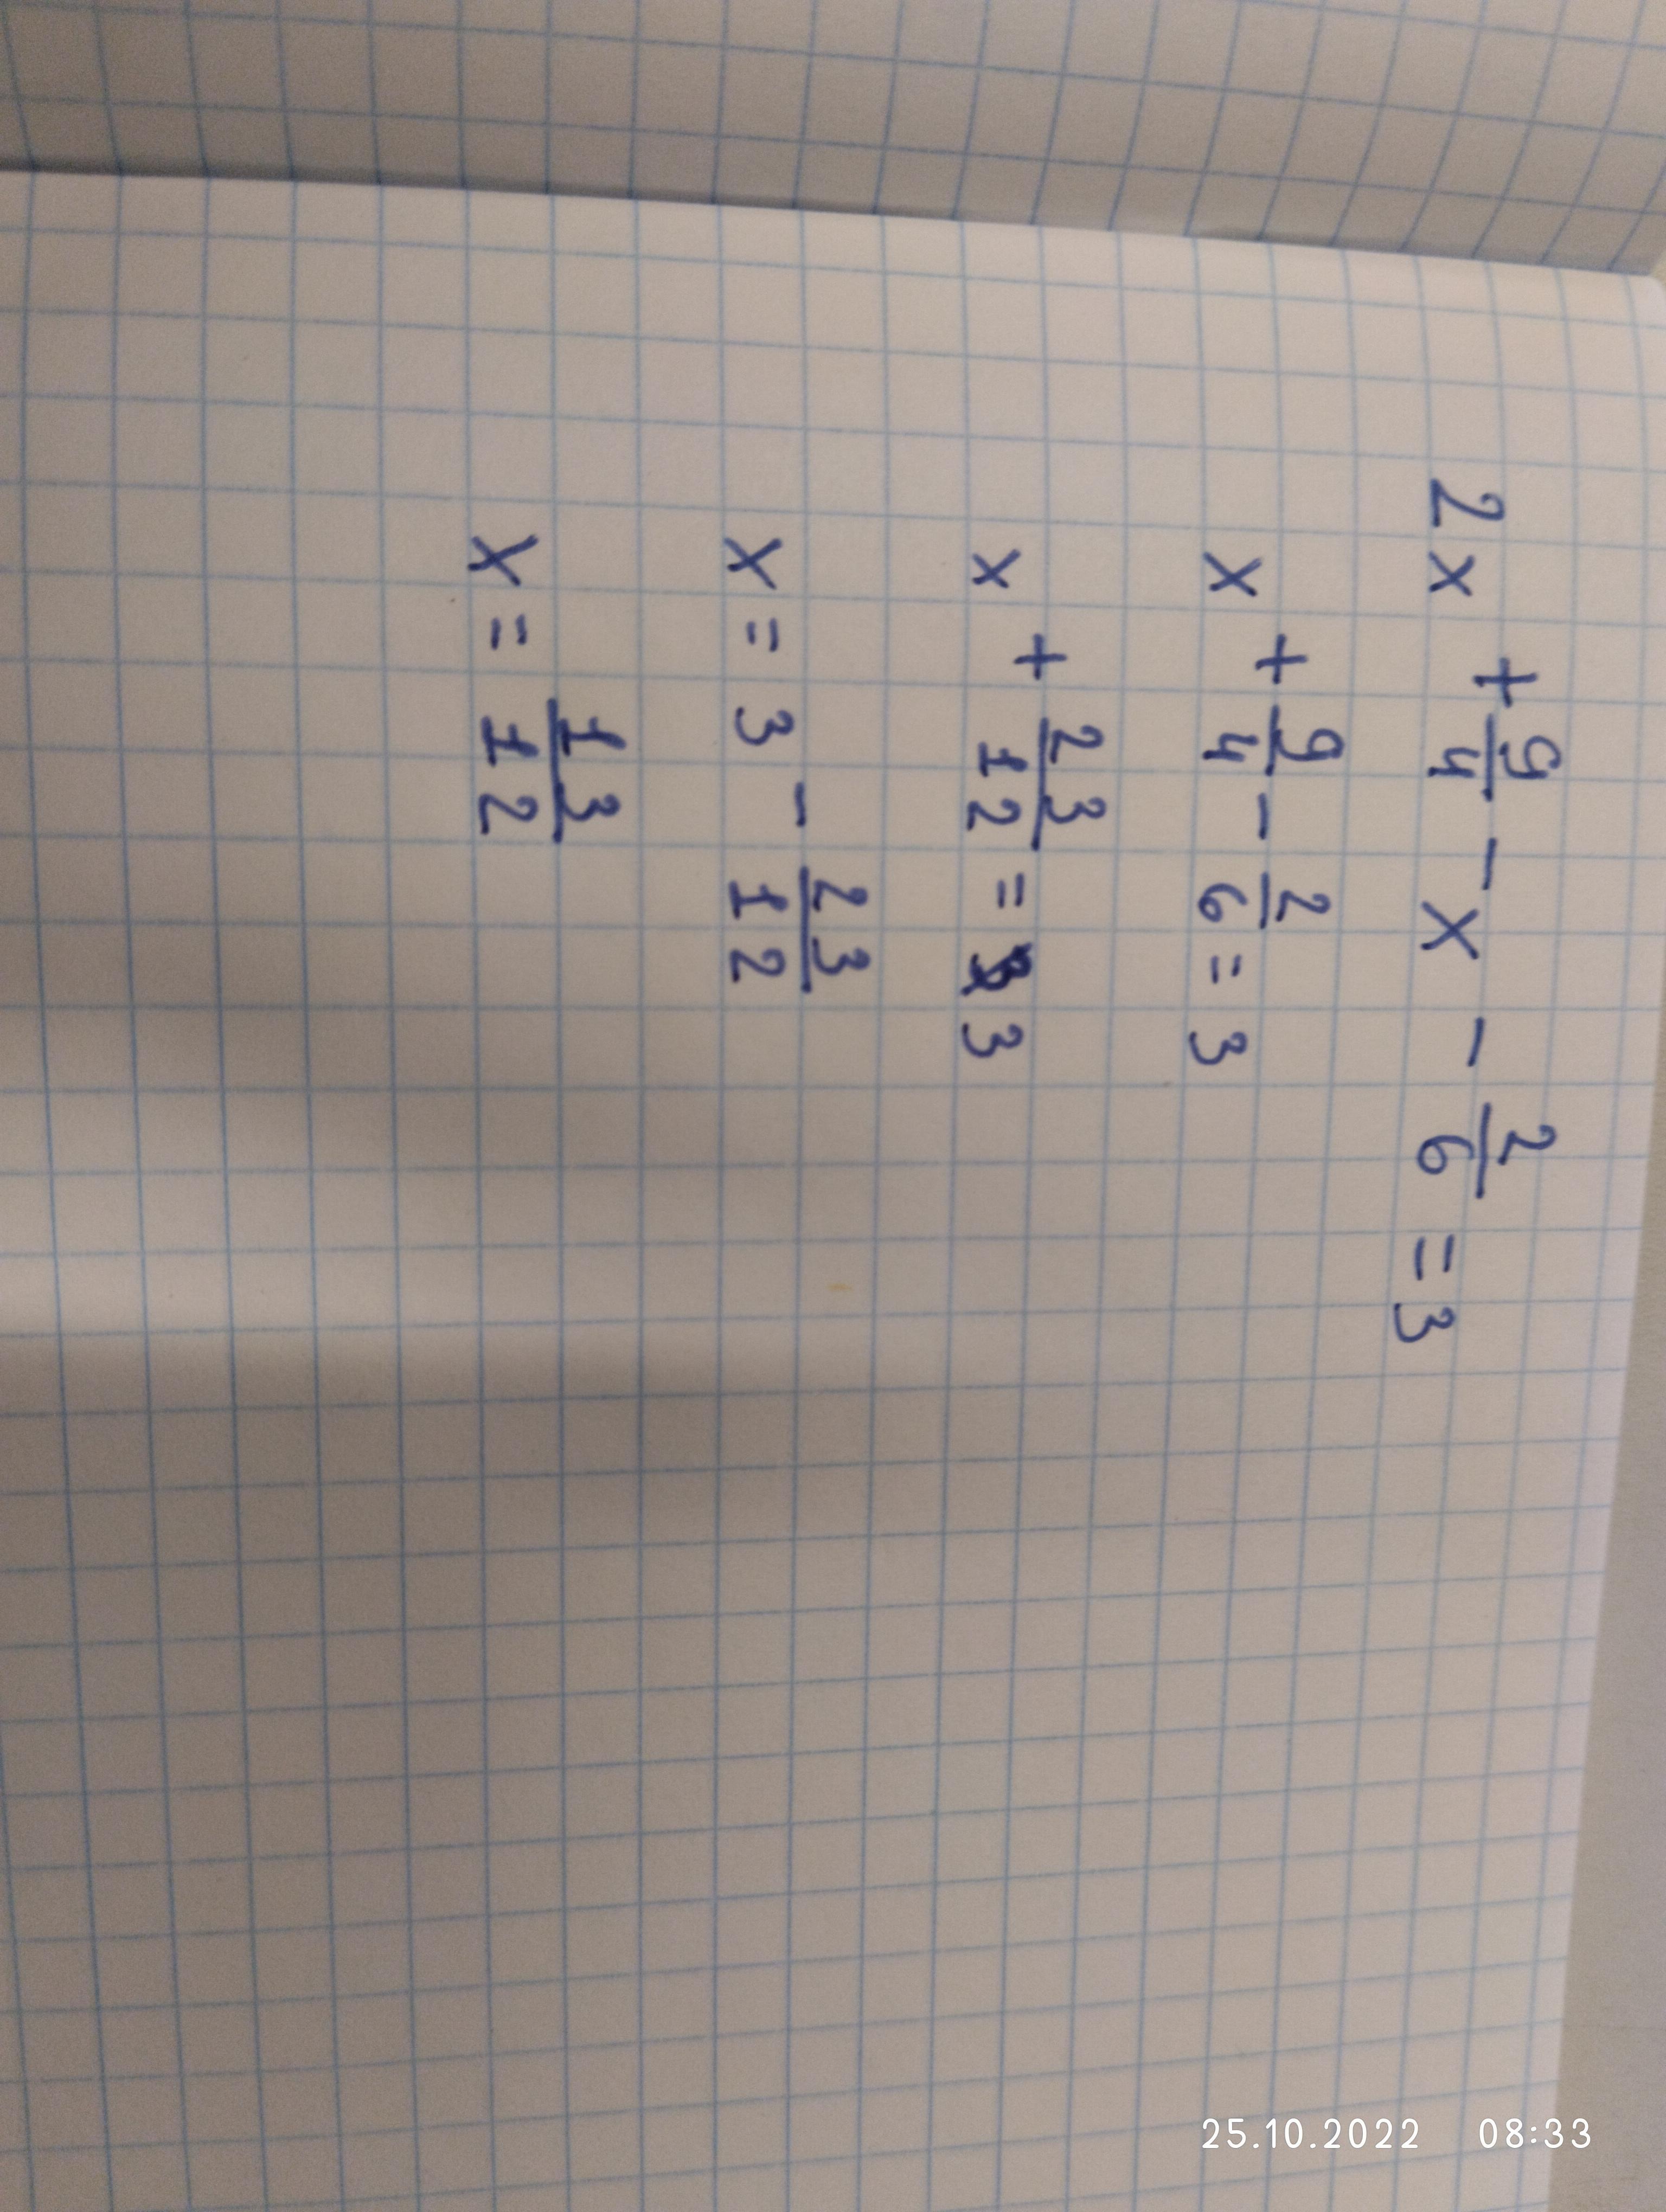 2x + 9/4 - x - 2/6 = 3
x + 9/4 - 2/6 = 3
x + 23/12 = 3
x = 3 - 23/12
x = 13/12
25.10.2022 08:33